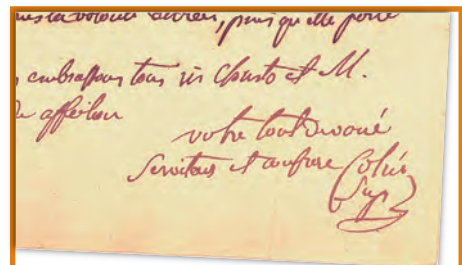 la volonté , puis qu'elle porte
embrassons tous in Christo et M.
affection
votre tout devoué
Serviteur et confrere Colin
Sup